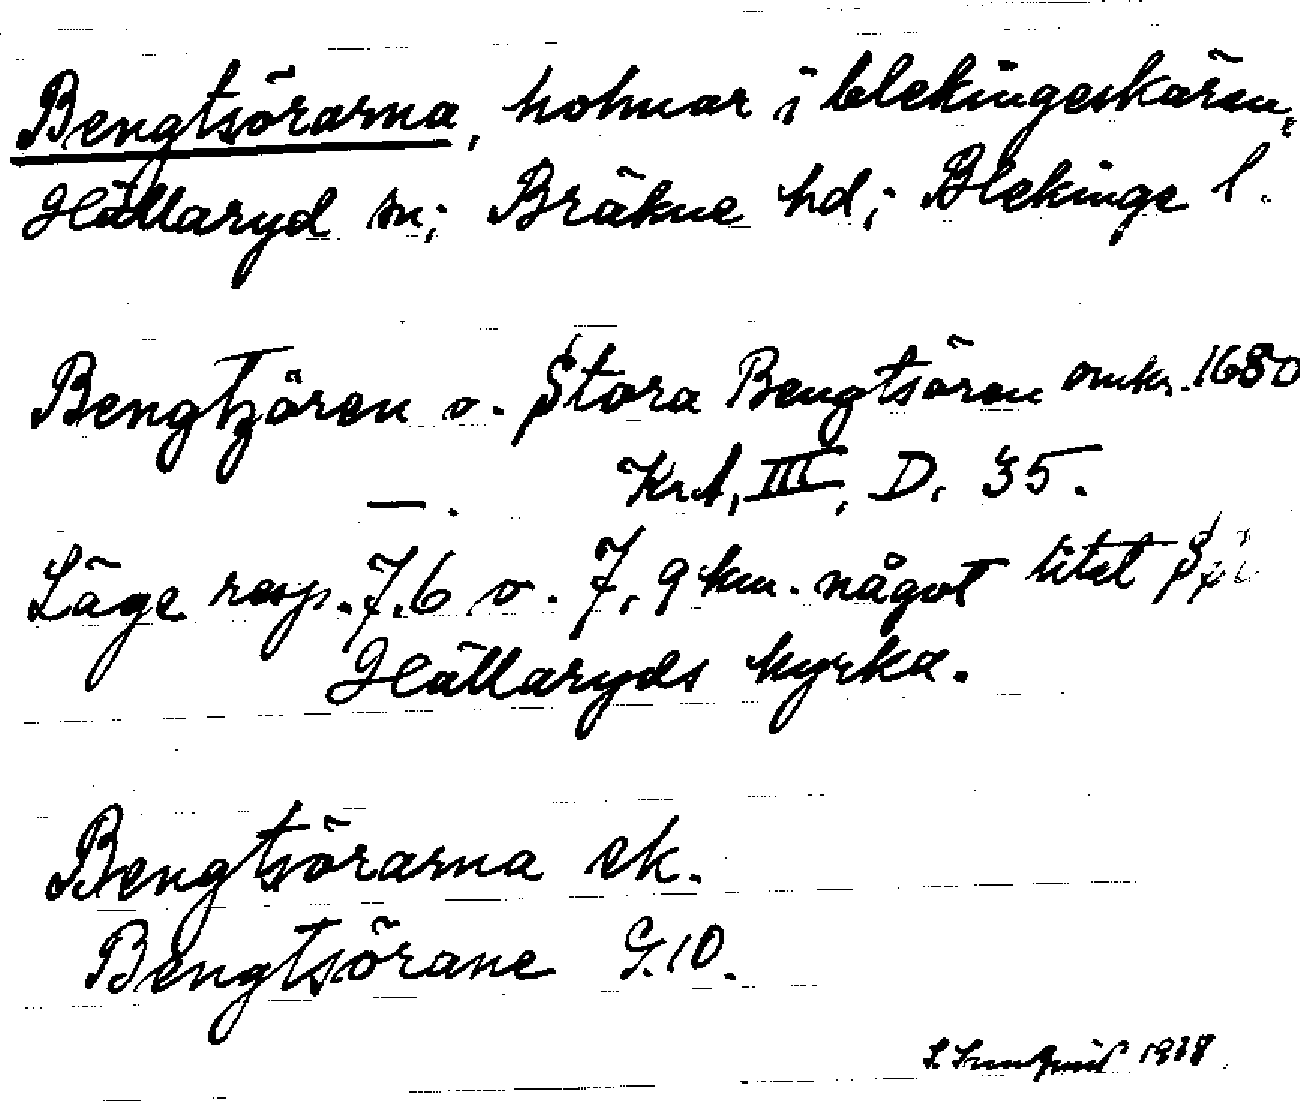 Bengtsörarna, holmar i blekingeskären,
Hällaryd sn; Bräkne hd; Blekinge l.
Bengtzören o. Stora Bengtsören omkr. 1680
—. Krt, III, D. 35.
Läge resp. 7.6 o. 7,9 km. något litet
Hällaryds kyrka.
Bengtsörarna ek.
Bengtsörane G.10.
1938